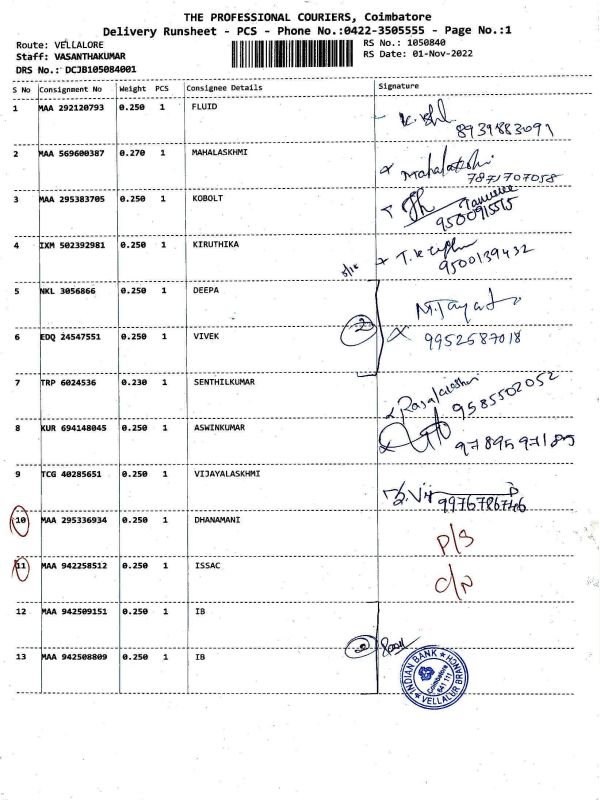 THE PROFESSIONAL COURIERS, Coimbatore
Delivery Runsheet - PCS - Phone No.:0422-3505555 - Page No.:1
Route: VELLALORE
RS No.: 1050840
Staff: VASANTHAKUMAR
RS Date: 01-Nov-2022
DRS No.: DCJB105084001
S No Consignment No Weight PCS Consignee Details Signature
1 MAA 292120793 0.250 1 FLUID
8939883091
2 MAA 569600387 0.270 1 MAHALASKHMI Mahalakshmi
7871707058
3 MAA 295383705 0.250 1 KOBOLT
9500915515
4 IXM 502392981 0.250 1 KIRUTHIKA
9500139432
5 NKL 3056866 0.250 1 DEEPA
2
6 EDQ 24547551 0.250 1 VIVEK 9952687018
7 TRP 6024536 0.230 1 SENTHILKUMAR
9585502052
8 KUR 694148045 0.250 1 ASWINKUMAR
9 TCG 40285651 0.250 1 VIJAYALASKHMI
9976786746
10 MAA 295336934 0.250 1 DHANAMANI P/S
11 MAA 942258512 0.250 1 ISSAC
12 MAA 942509151 0.250 1 IB
2
13 MAA 942508809 0.250 1 IB
INDIAN BANK
Coimbatore
641 111
VELLALUR BRANCH